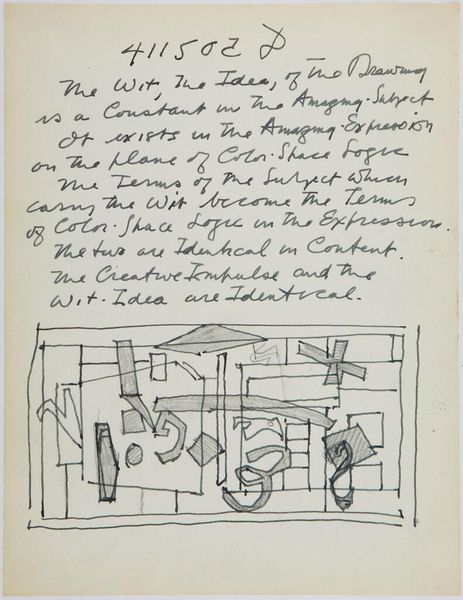 The Wit, The Idea, of The Drawing
is a Constant in The Amazing-Subject
It exists in The Amazing Expression
on The plane of Color-Space Logic
The Terms of The Subject which
carry The Wit become The Terms
of Color-Space Logic in The Expression.
The two are Identical in Content.
The Creative Impulse and The
Wit-Idea are Identical.